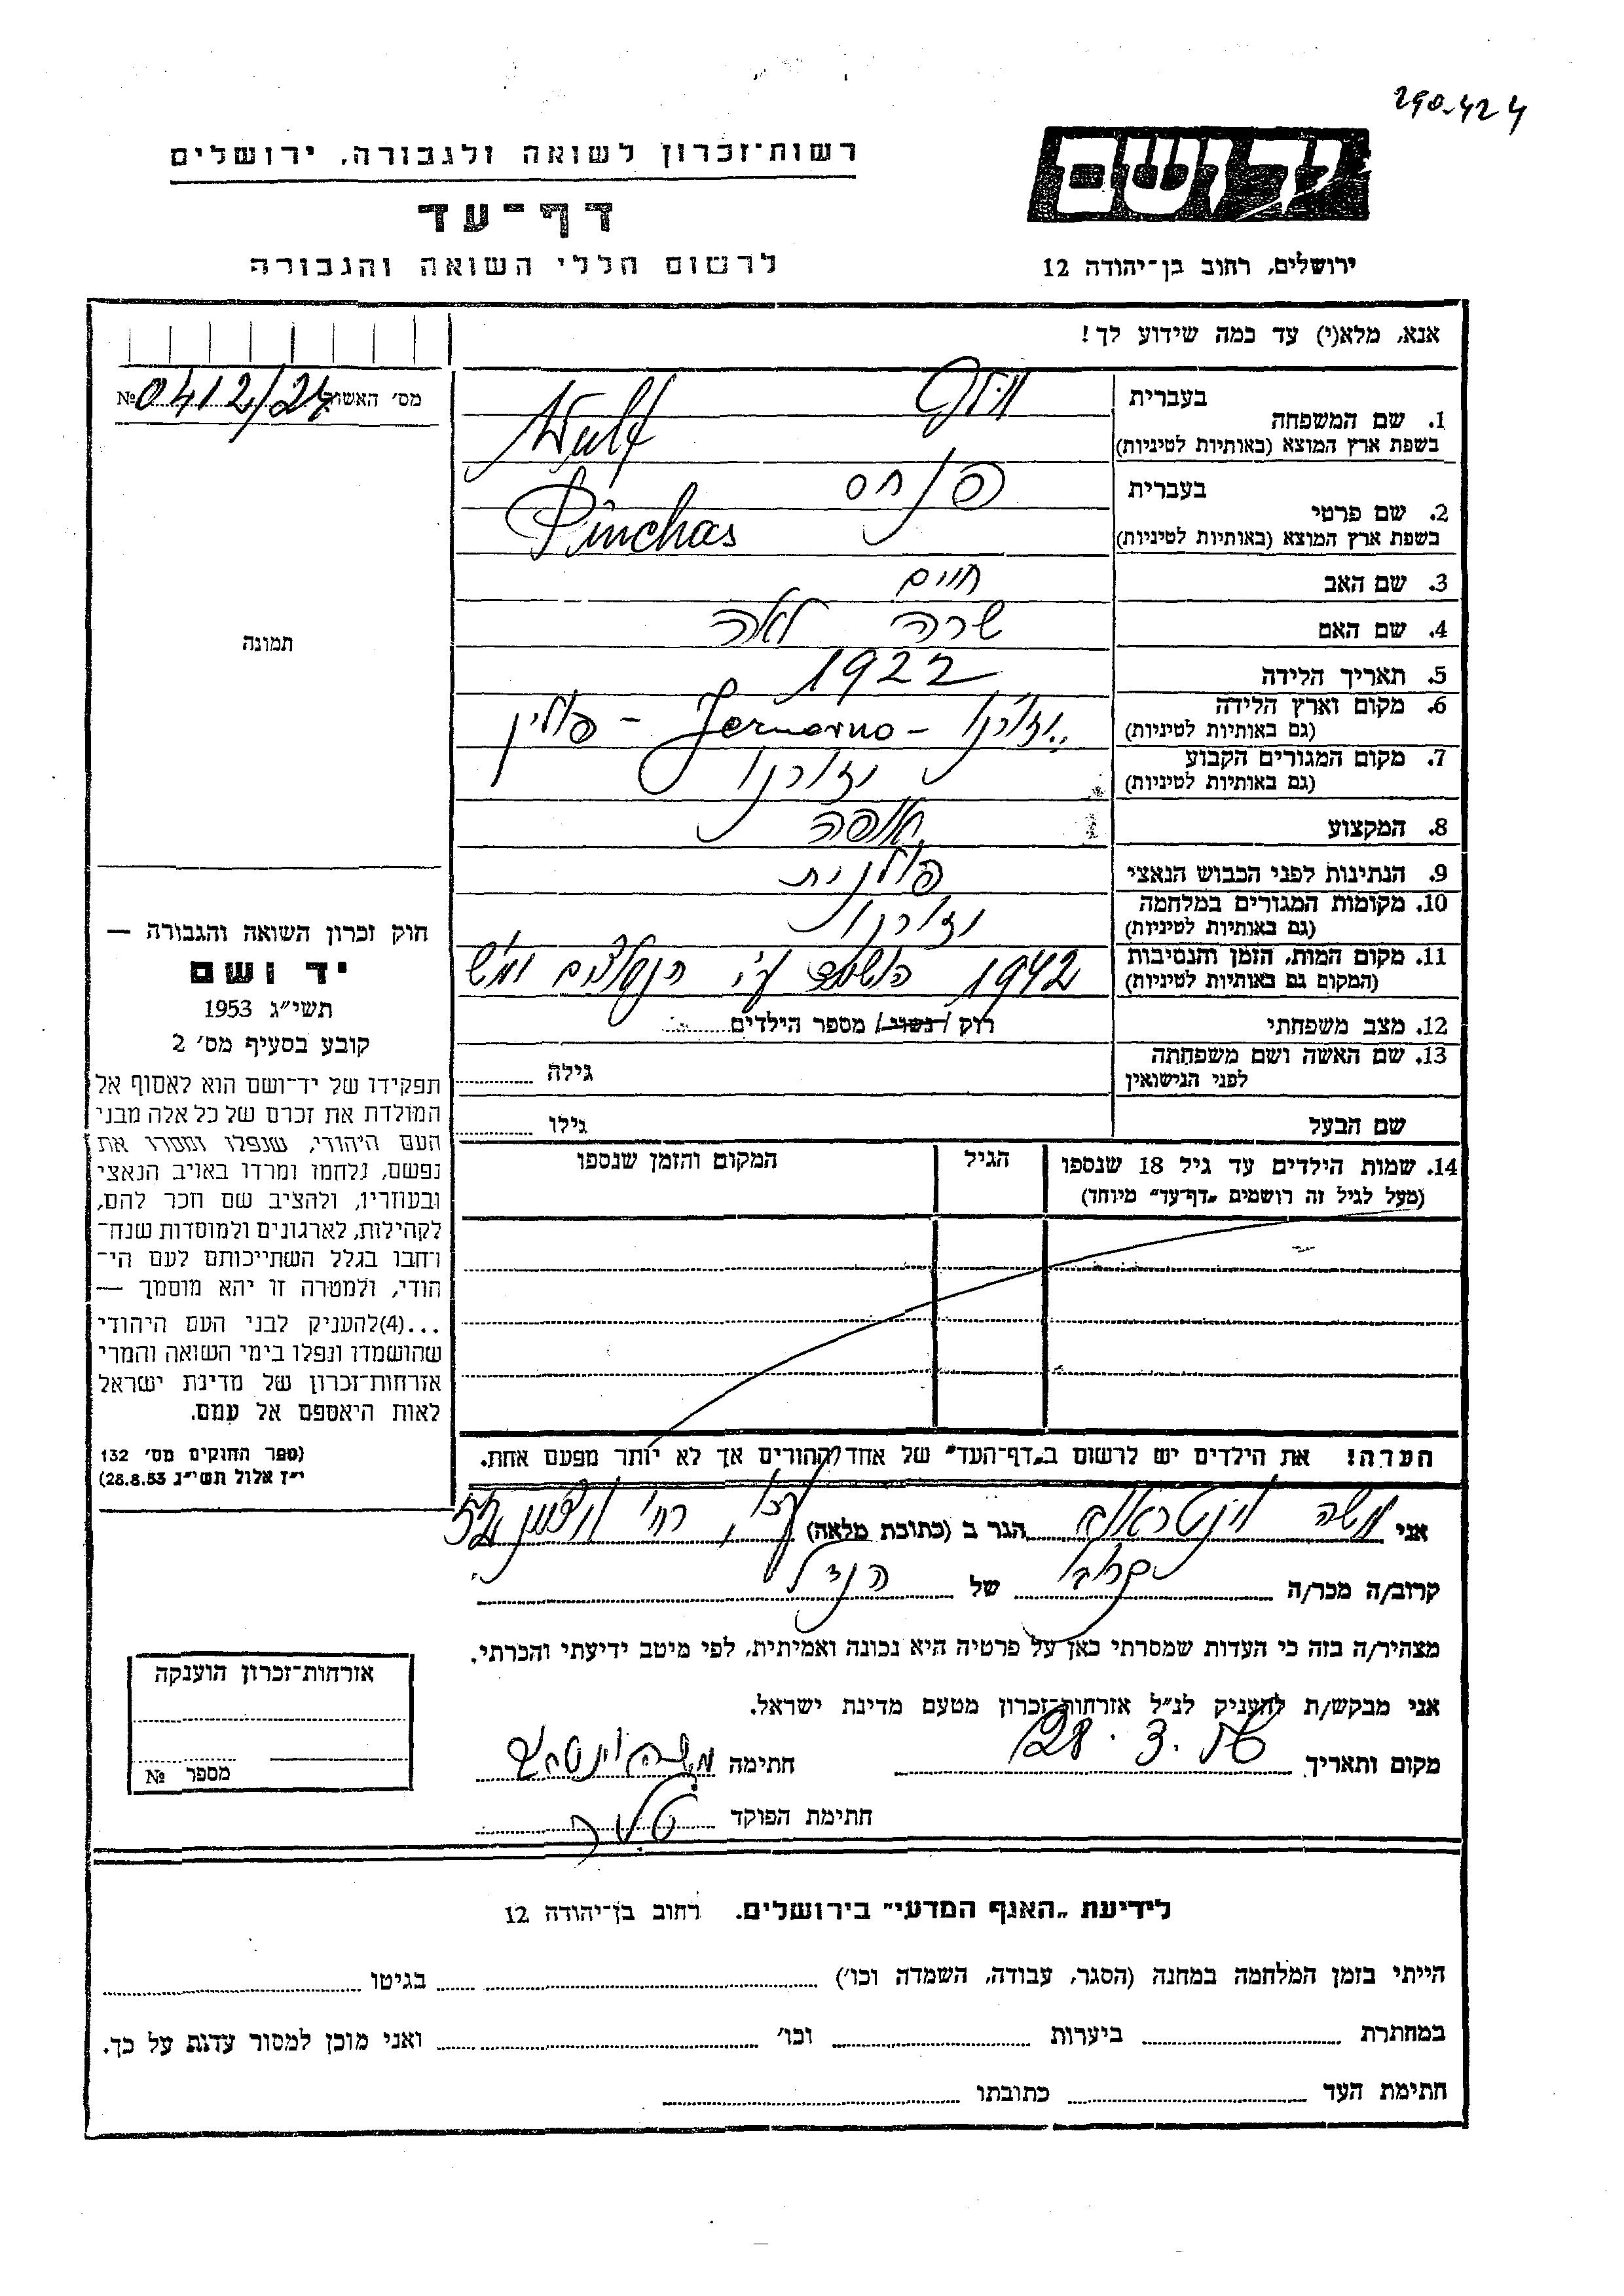 290.424
רשות־זכרון לשואה ולגבורה, ירושלים
יד ושם
דף־עד
לרשום חללי השואה והגבורה
ירושלים, רחוב בן־יהודה 12
אנא, מלא(י) עד כמה שידוע לך!
מס' האשור 0412/24 №
1. שם המשפחה בעברית וולף
בשפת ארץ המוצא (באותיות לטיניות) Wulf
2. שם פרטי בעברית פנחס
בשפת ארץ המוצא (באותיות לטיניות) Pinchas
3. שם האב חיים
4. שם האם שרה לאה
5. תאריך הלידה 1922
6. מקום וארץ הלידה
(גם באותיות לטיניות) - פולין
7. מקום המגורים הקבוע
(גם באותיות לטיניות)
8. המקצוע אופה
9. הנתינות לפני הכבוש הנאצי פולנית
10. מקומות המגורים במלחמה
(גם באותיות לטיניות)
11. מקום המות, הזמן והנסיבות 1942 הושמד ע"י הנאצים
(המקום גם באותיות לטיניות)
12. מצב משפחתי רוק / נשוי / מספר הילדים
13. שם האשה ושם משפחתה
לפני הנישואין גילה
שם הבעל גילו
14. שמות הילדים עד גיל 18 שנספו הגיל המקום והזמן שנספו
(מעל לגיל זה רושמים „דף־עד" מיוחד)
הערה! את הילדים יש לרשום ב„דף־העד" של אחד ההורים אך לא יותר מפעם אחת.
תמונה
חוק זכרון השואה והגבורה —
יד ושם
תשי״ג 1953
קובע בסעיף מס' 2
תפקידו של יד־ושם הוא לאסוף אל
המולדת את זכרם של כל אלה מבני
העם היהודי, שנפלו ומסרו את
נפשם, נלחמו ומרדו באויב הנאצי
ובעוזריו, ולהציב שם וזכר להם,
לקהילות, לארגונים ולמוסדות שנח־
רחבו בגלל השתייכותם לעם הי־
הודי, ולמטרה זו יהא מוסמך —
...(4)להעניק לבני העם היהודי
שהושמדו ונפלו בימי השואה והמרי
אזרחות־זכרון של מדינת ישראל
לאות היאספם אל עמם.
(ספר החוקים מס' 132
י״ז אלול תשי״ג 28.8.53)
אני משה וינטראוב הגר ב (כתובת מלאה)
קרוב/ה מכר/ה קרוב של הנ"ל
מצהיר/ה בזה כי העדות שמסרתי כאן על פרטיה היא נכונה ואמיתית, לפי מיטב ידיעתי והכרתי.
אני מבקש/ת להעניק לנ״ל אזרחות־זכרון מטעם מדינת ישראל.
מקום ותאריך 28.3.56 חתימה משה וינטרוב
חתימת הפוקד
אזרחות־זכרון הוענקה
מספר №
לידיעת „האגף המדעי" בירושלים. רחוב בן־יהודה 12
הייתי בזמן המלחמה במחנה (הסגר, עבודה, השמדה וכו') בגיטו
במחתרת ביערות וכו' ואני מוכן למסור עדות על כך.
חתימת העד כתובתו